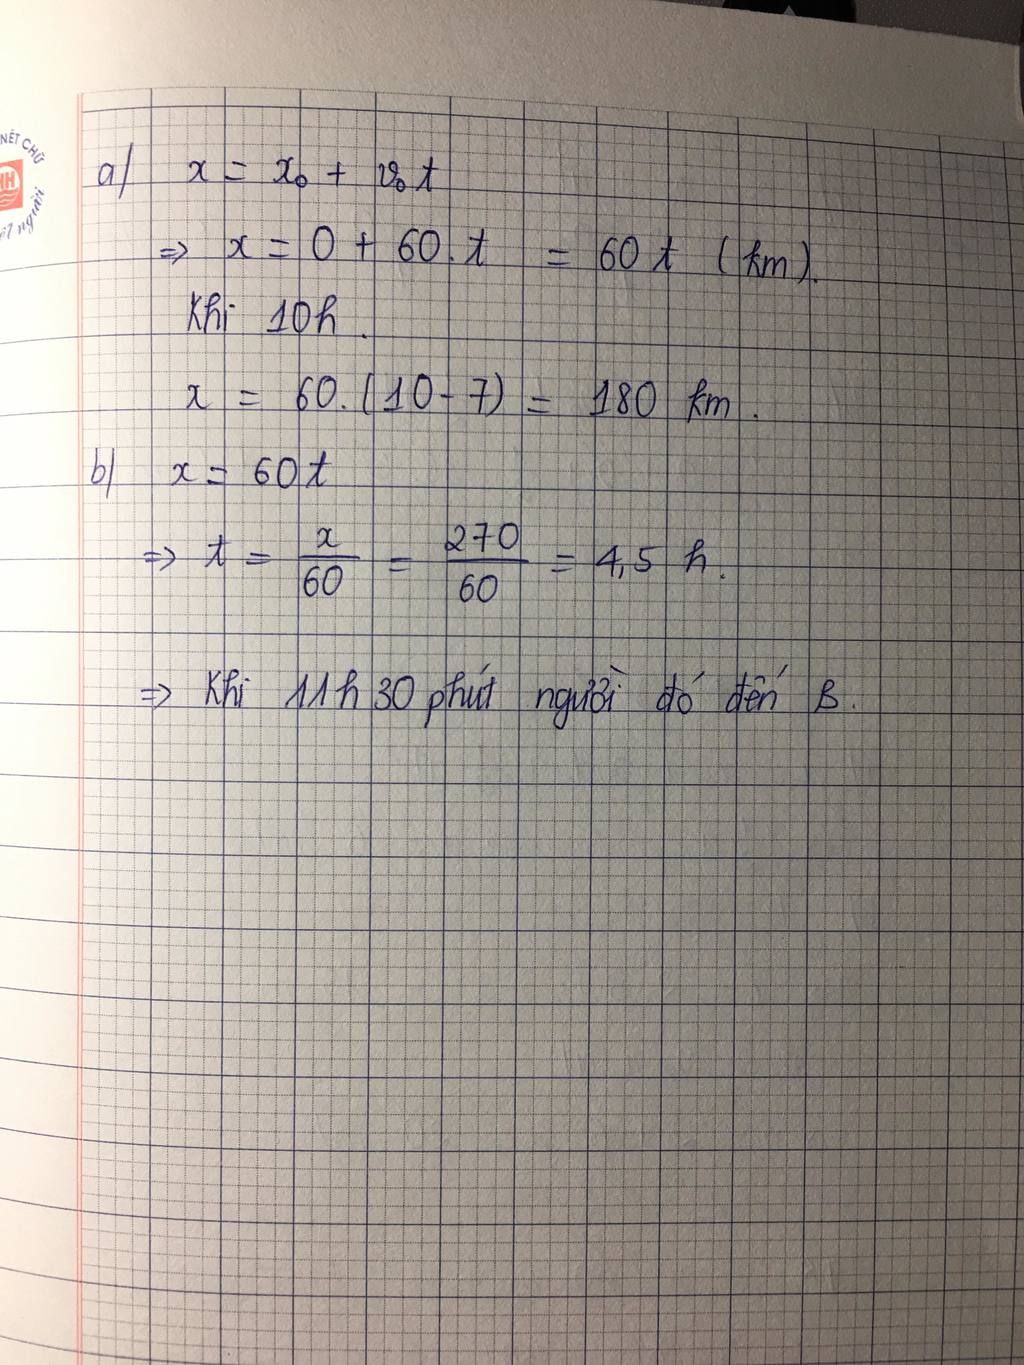 NÉT CHỮ
HH
a) x = x₀ + v₀ t
⇒ x = 0 + 60 . t = 60 t (km).
Khi 10h.
x = 60.(10-7) = 180 km.
b) x = 60t
⇒ t = x/60 = 270/60 = 4,5 h.
⇒ Khi 11h 30 phút người đó đến B.